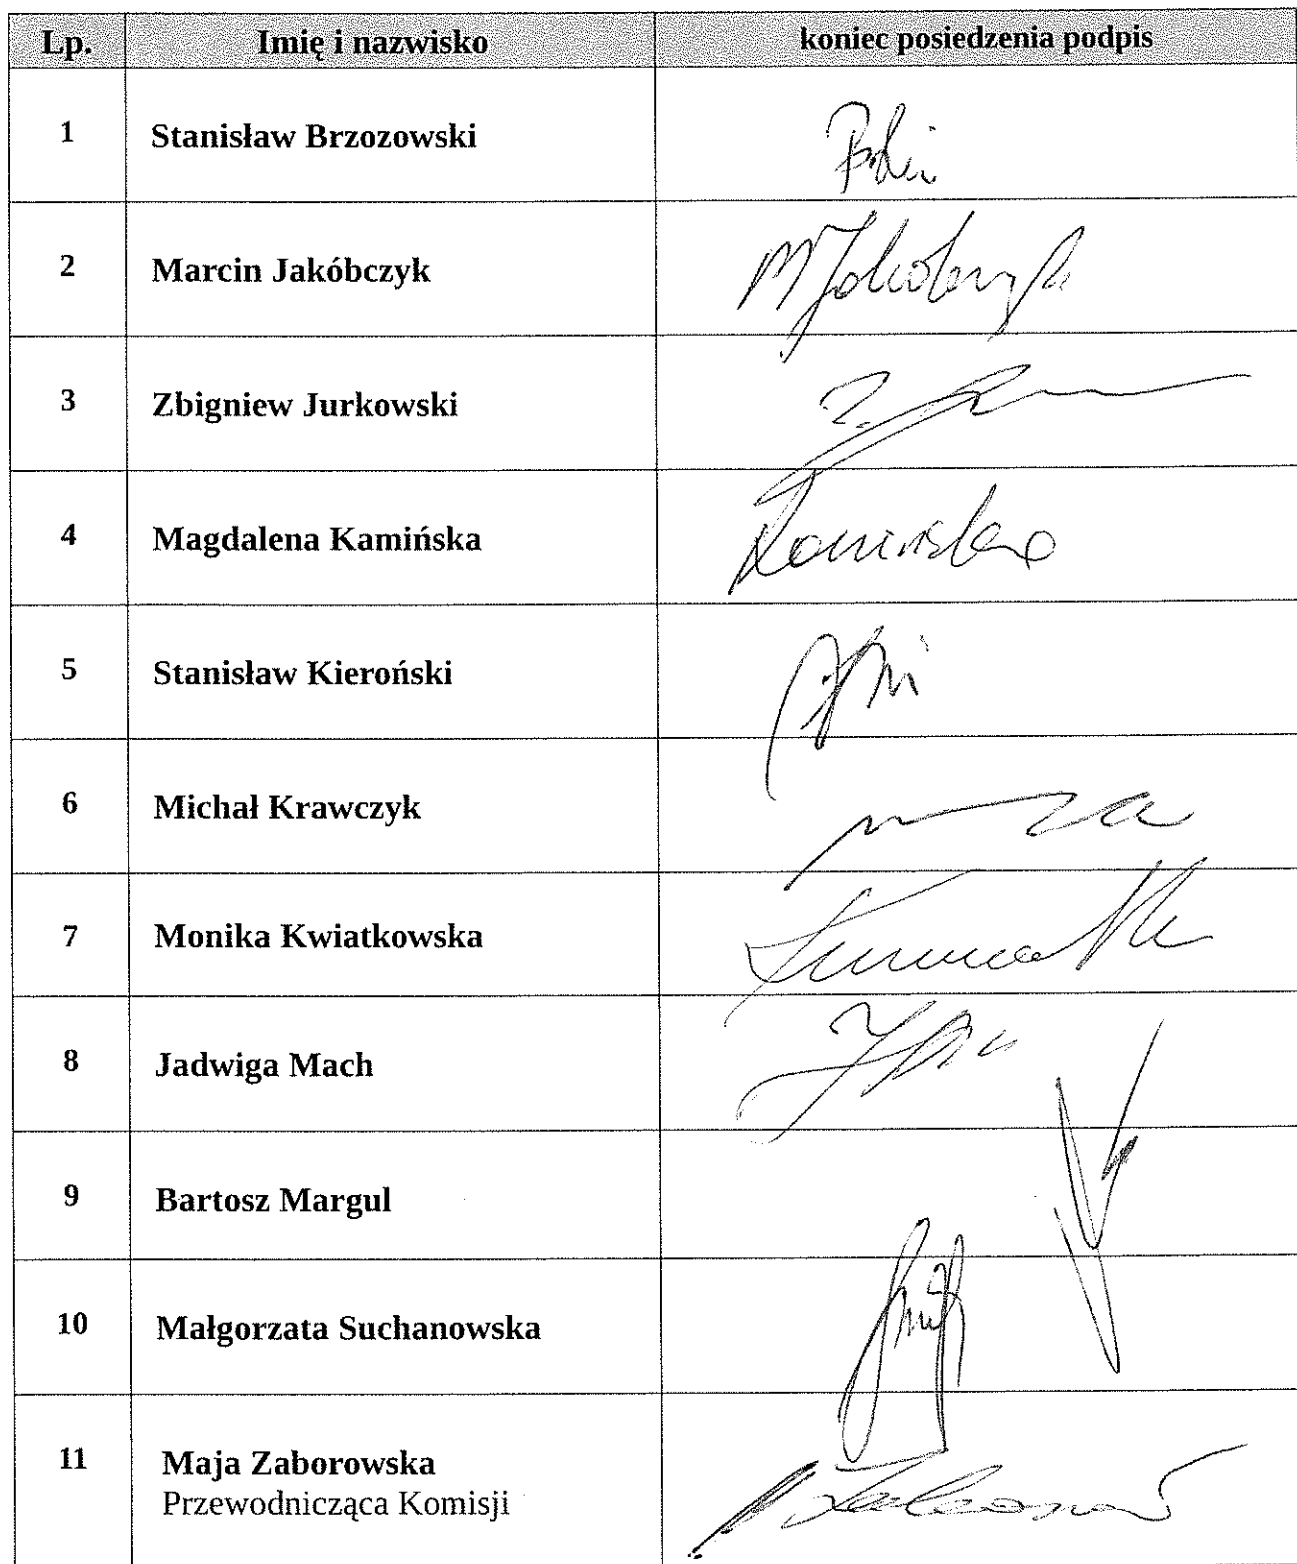 Lp. Imię i nazwisko koniec posiedzenia podpis
1 Stanisław Brzozowski
2 Marcin Jakóbczyk
3 Zbigniew Jurkowski
4 Magdalena Kamińska
5 Stanisław Kieroński
6 Michał Krawczyk
7 Monika Kwiatkowska
8 Jadwiga Mach
9 Bartosz Margul
10 Małgorzata Suchanowska
11 Maja Zaborowska
Przewodnicząca Komisji